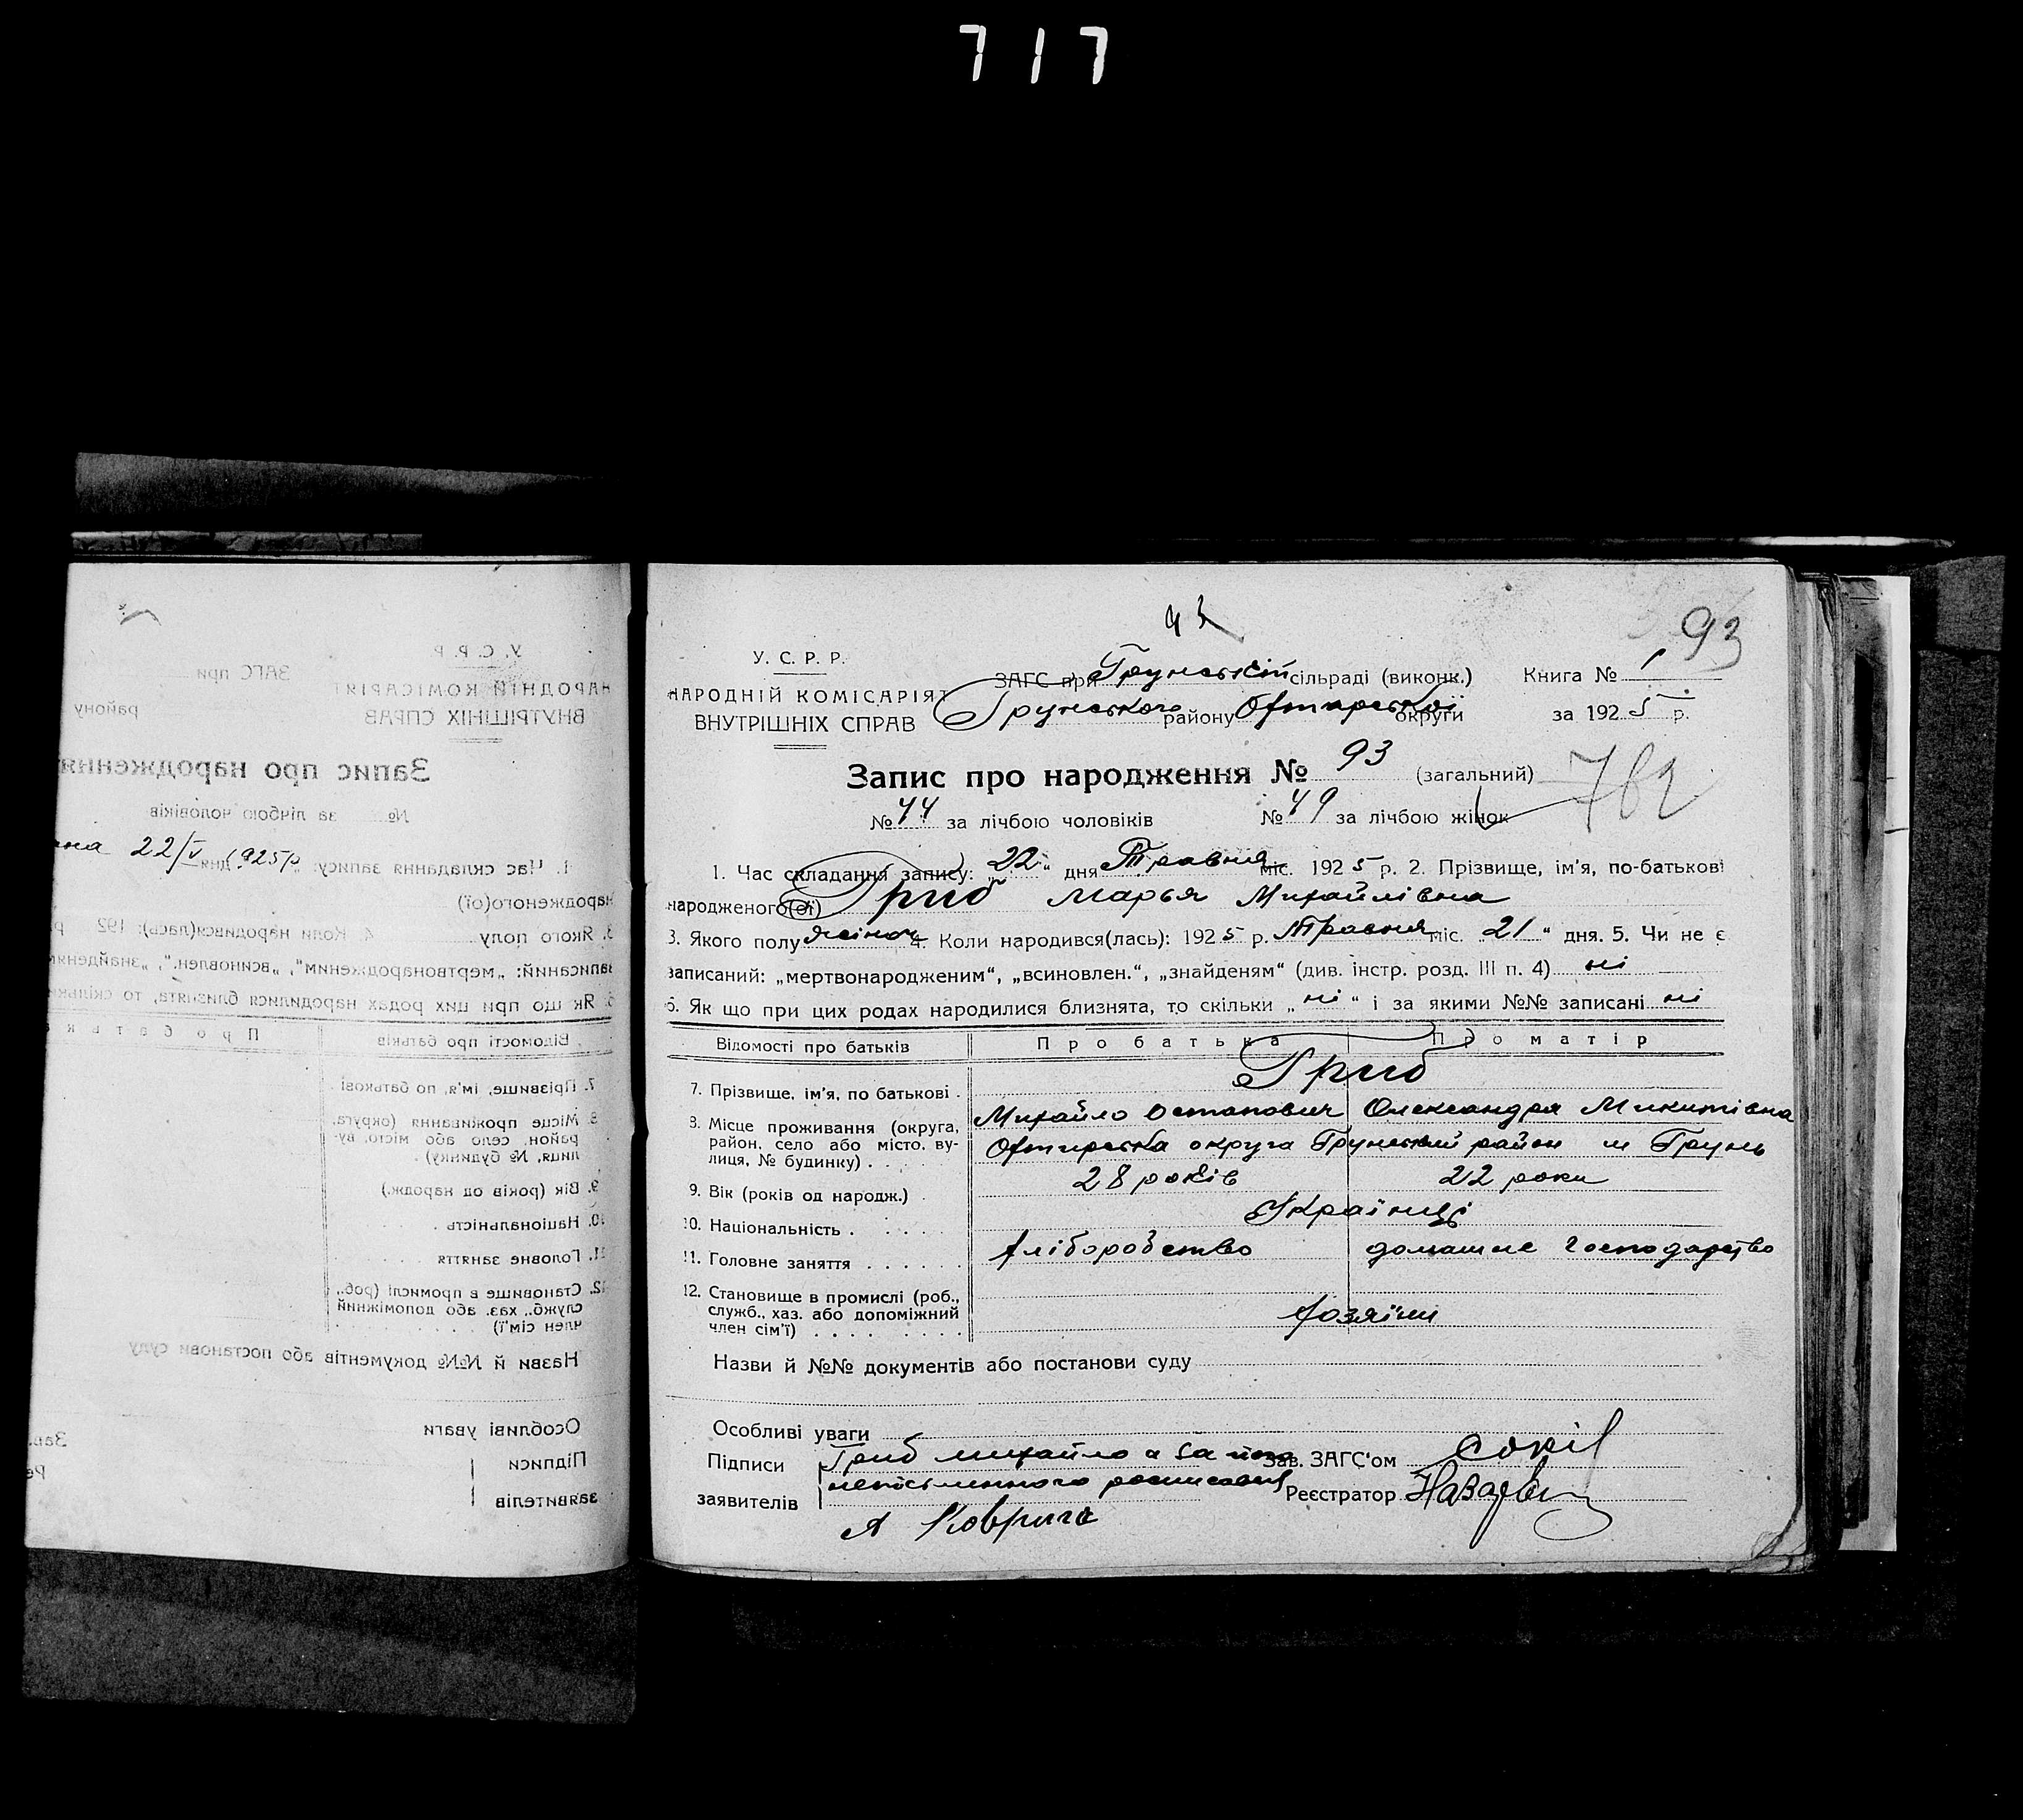 717
93
93
У. С. Р. Р.
НАРОДНІЙ КОМІСАРІЯТ
ВНУТРІШНІХ СПРАВ
ЗАГС при Грунській сільраді (виконк.)
Грунського району Охтирської округи
Книга № 1
за 1925 р.
Запис про народження № 93 (загальний)
762
№ 44 за лічбою чоловіків № 49 за лічбою жінок
1. Час складання запису: „22“ дня Травня міс. 1925 р. 2. Прізвище, ім'я, по-батькові
народженого(ої) Гриб Марья Михайлівна
3. Якого полу жіноч 4. Коли народився(лась): 1925 р. Травня міс. 21 “ дня. 5. Чи не є
записаний: „мертвонародженим“, „всиновлен.“, „знайденям“ (див. інстр. розд. III п. 4) ні
6. Як що при цих родах народилися близнята, то скільки „ні“ і за якими №№ записані ні
Відомості про батьків Про батька Про матір
Гриб
7. Прізвище, ім'я, по батькові .
Михайло Остапович Олександра Микитівна
8. Місце проживання (округа,
район, село або місто, ву-
лиця, № будинку) . . . . .
Охтирська округа Грунський район м Грунь
9. Вік (років од народж.) . 28 років 22 роки
10. Національність . . . . . Українці
11. Головне заняття . . . . . . Хліборобство домашнє господарство
12. Становище в промислі (роб.,
служб., хаз. або допоміжний
член сім'ї) . . . . . . . .
Хозяїни
Назви й №№ документів або постанови суду
Особливі уваги
Підписи
заявителів
Гриб Михайло а за його
неписьменного росписався
А Коврига
Зав. ЗАГС'ом Сокіл
Реєстратор
У. С. Р. Р.
НАРОДНІЙ КОМІСАРІЯТ
ВНУТРІШНІХ СПРАВ
ЗАГС при
району
Запис про народження
№ за лічбою чоловіків
1. Час складання запису: дня
22/V 1925р
народженого(ої)
3. Якого полу 4. Коли народився(лась): 192 р
записаний: „мертвонародженим“, „всиновлен.“, „знайденям
6. Як що при цих родах народилися близнята, то скільки
Відомості про батьків Про батька
7. Прізвище, ім'я, по батькові .
8. Місце проживання (округа,
район, село або місто, ву-
лиця, № будинку) .
9. Вік (років од народж.)
10. Національність .
11. Головне заняття
12. Становище в промислі (роб.,
служб., хаз. або допоміжний
член сім'ї)
Назви й №№ документів або постанови суду
Особливі уваги
Підписи
заявителів